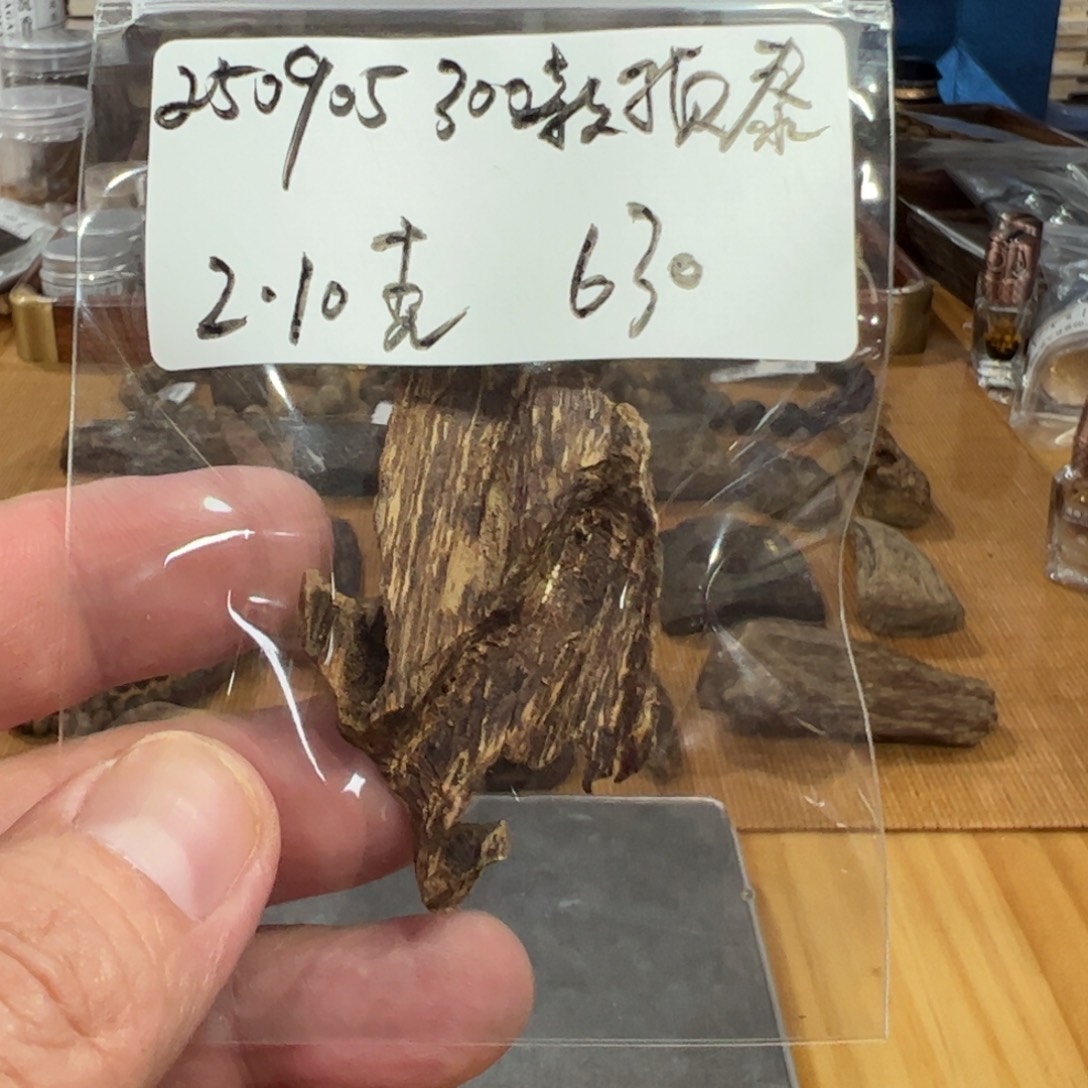 250905 300款顶泰
2.10克 630